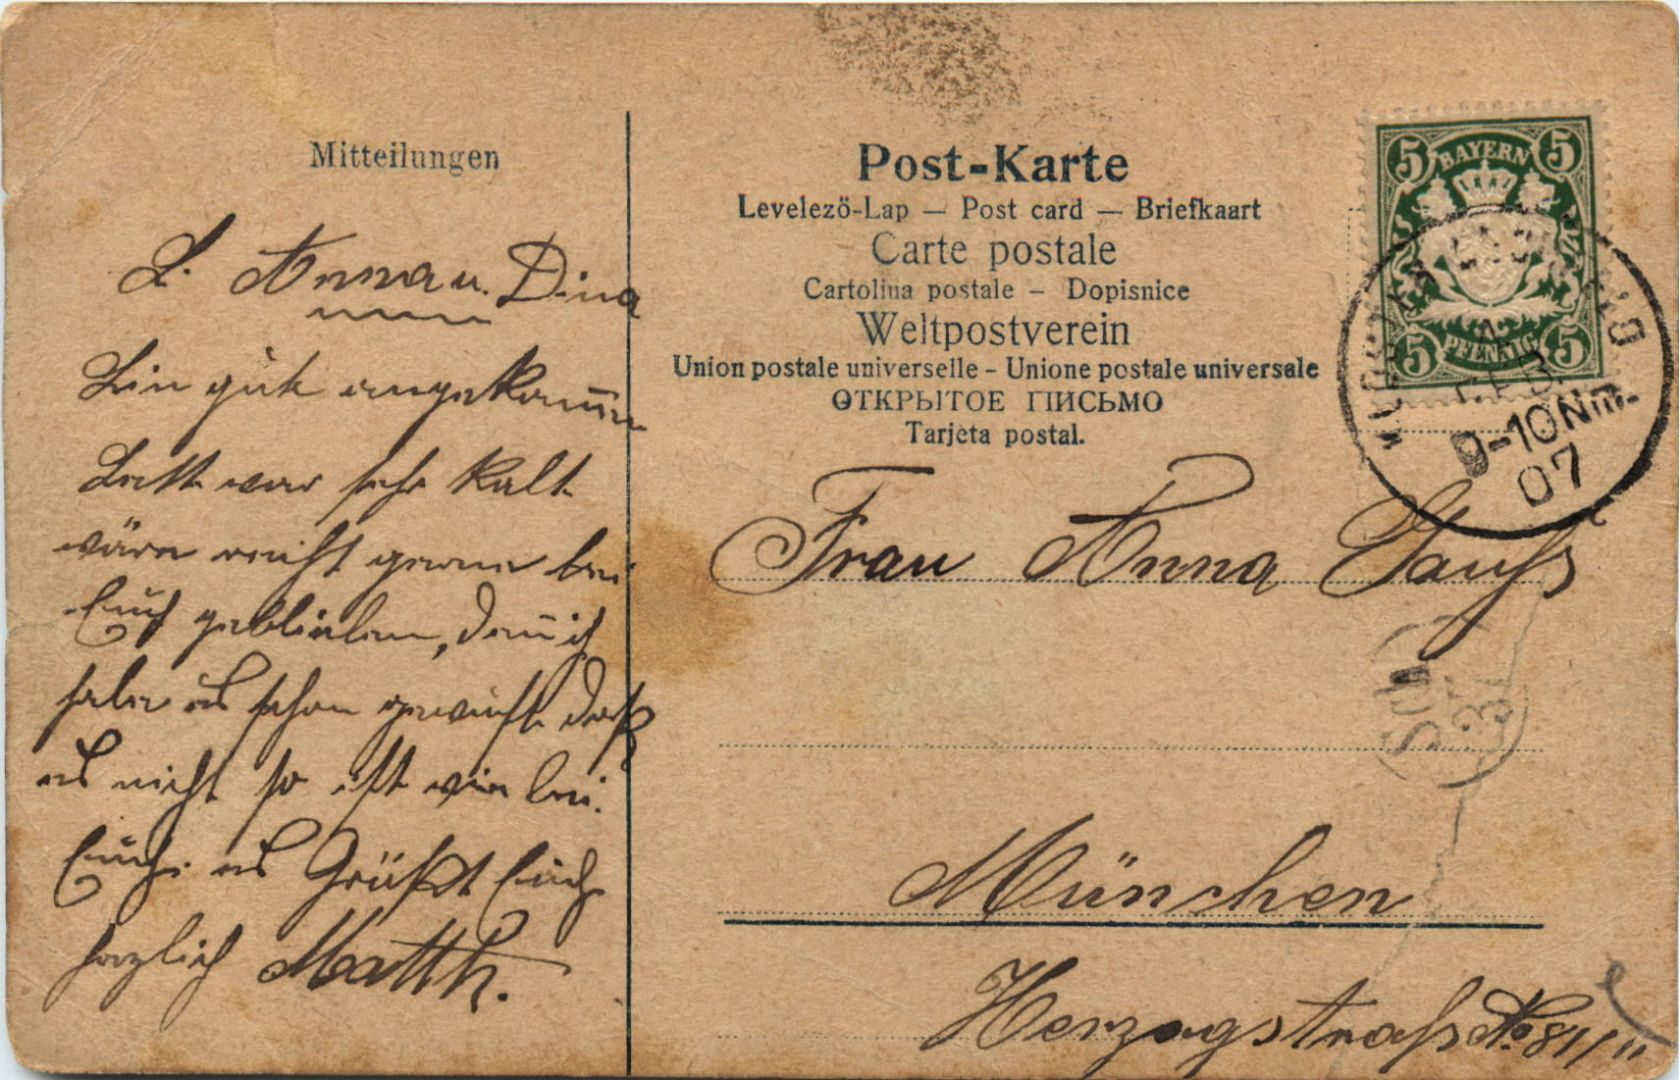 Mitteilungen
L. Anna u. Dina
Bin gut angekom̅en
Bett war sehr kalt
wäre recht gerne bei
Euch geblieben, den̅ ich
habe es schon gewußt daß
es nicht so ist wie bei
Euch. es Grüßt Euch
herzlich Matth.
Post-Karte
Levelező-Lap — Post card — Briefkaart
Carte postale
Cartolina postale – Dopisnice
Weltpostverein
Union postale universelle - Unione postale universale
ОТКРЫТОЕ ПИСЬМО
Tarjeta postal.
5 BAYERN 5
5 PFENNIG 5
FEB.
9-10 Nm.
07
Frau Anna Gauß
München
Herzogstraße No 81/II